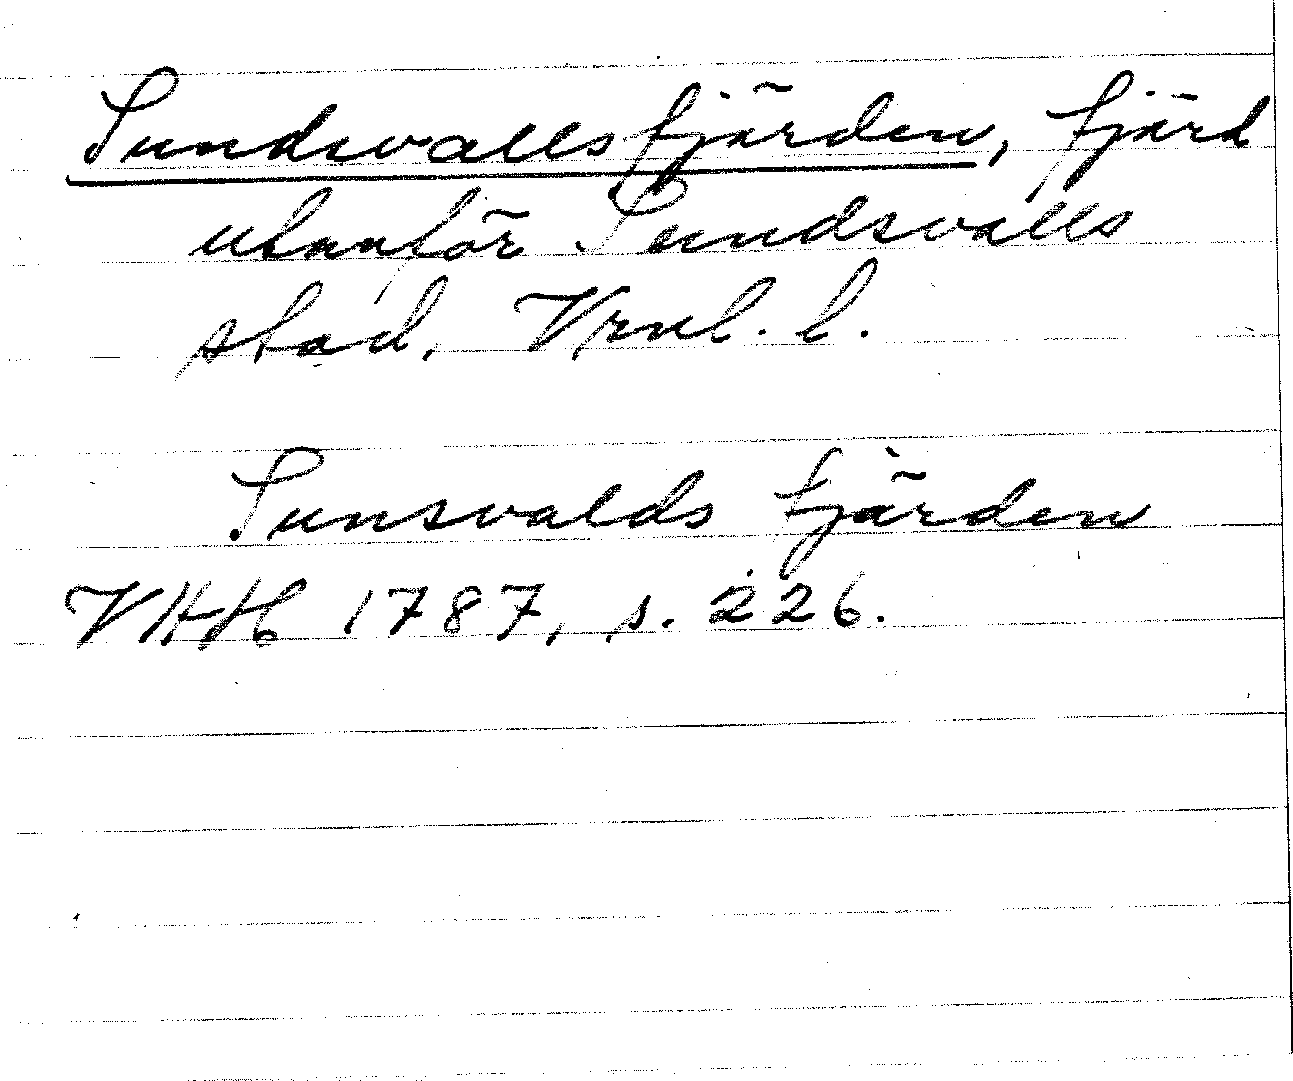 Sundsvallsfjärden, fjärd
utanför Sundsvalls
stad, Vrnl. l.
Sunsvalds fjärden
VHH 1787, s. 226.